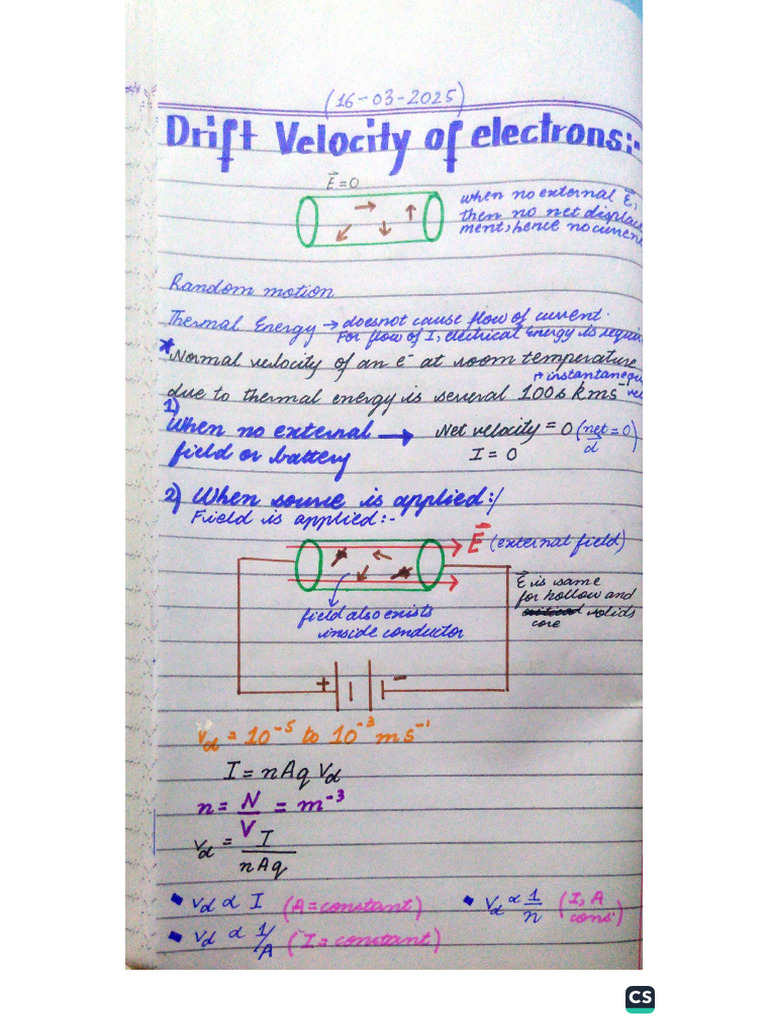 (16-03-2025)
Drift Velocity of electrons:-
E⃗ = 0
when no external E⃗,
then no net displac
ment, hence no curren
Random motion
Thermal Energy → doesnot cause flow of current.
For flow of I, electrical energy is requir
*Normal velocity of an e⁻ at room temperature
instantaneou
due to thermal energy is several 100s kms⁻¹
1)
When no external → Net velocity = 0 (net = 0)
field or battery
d⃗
I = 0
2) When source is applied:/
Field is applied:-
E⃗ (external field)
E⃗ is same
for hollow and
solids
core
field also exists
inside conductor
+ -
Vd = 10⁻⁵ to 10⁻³ ms⁻¹
I = nAq Vd
n = N/V = m⁻³
Vd = I/nAq
▪ Vd ∝ I (A = constant)
▪ Vd ∝ 1/n (I, A cons.)
▪ Vd ∝ 1/A (I = constant)
CS